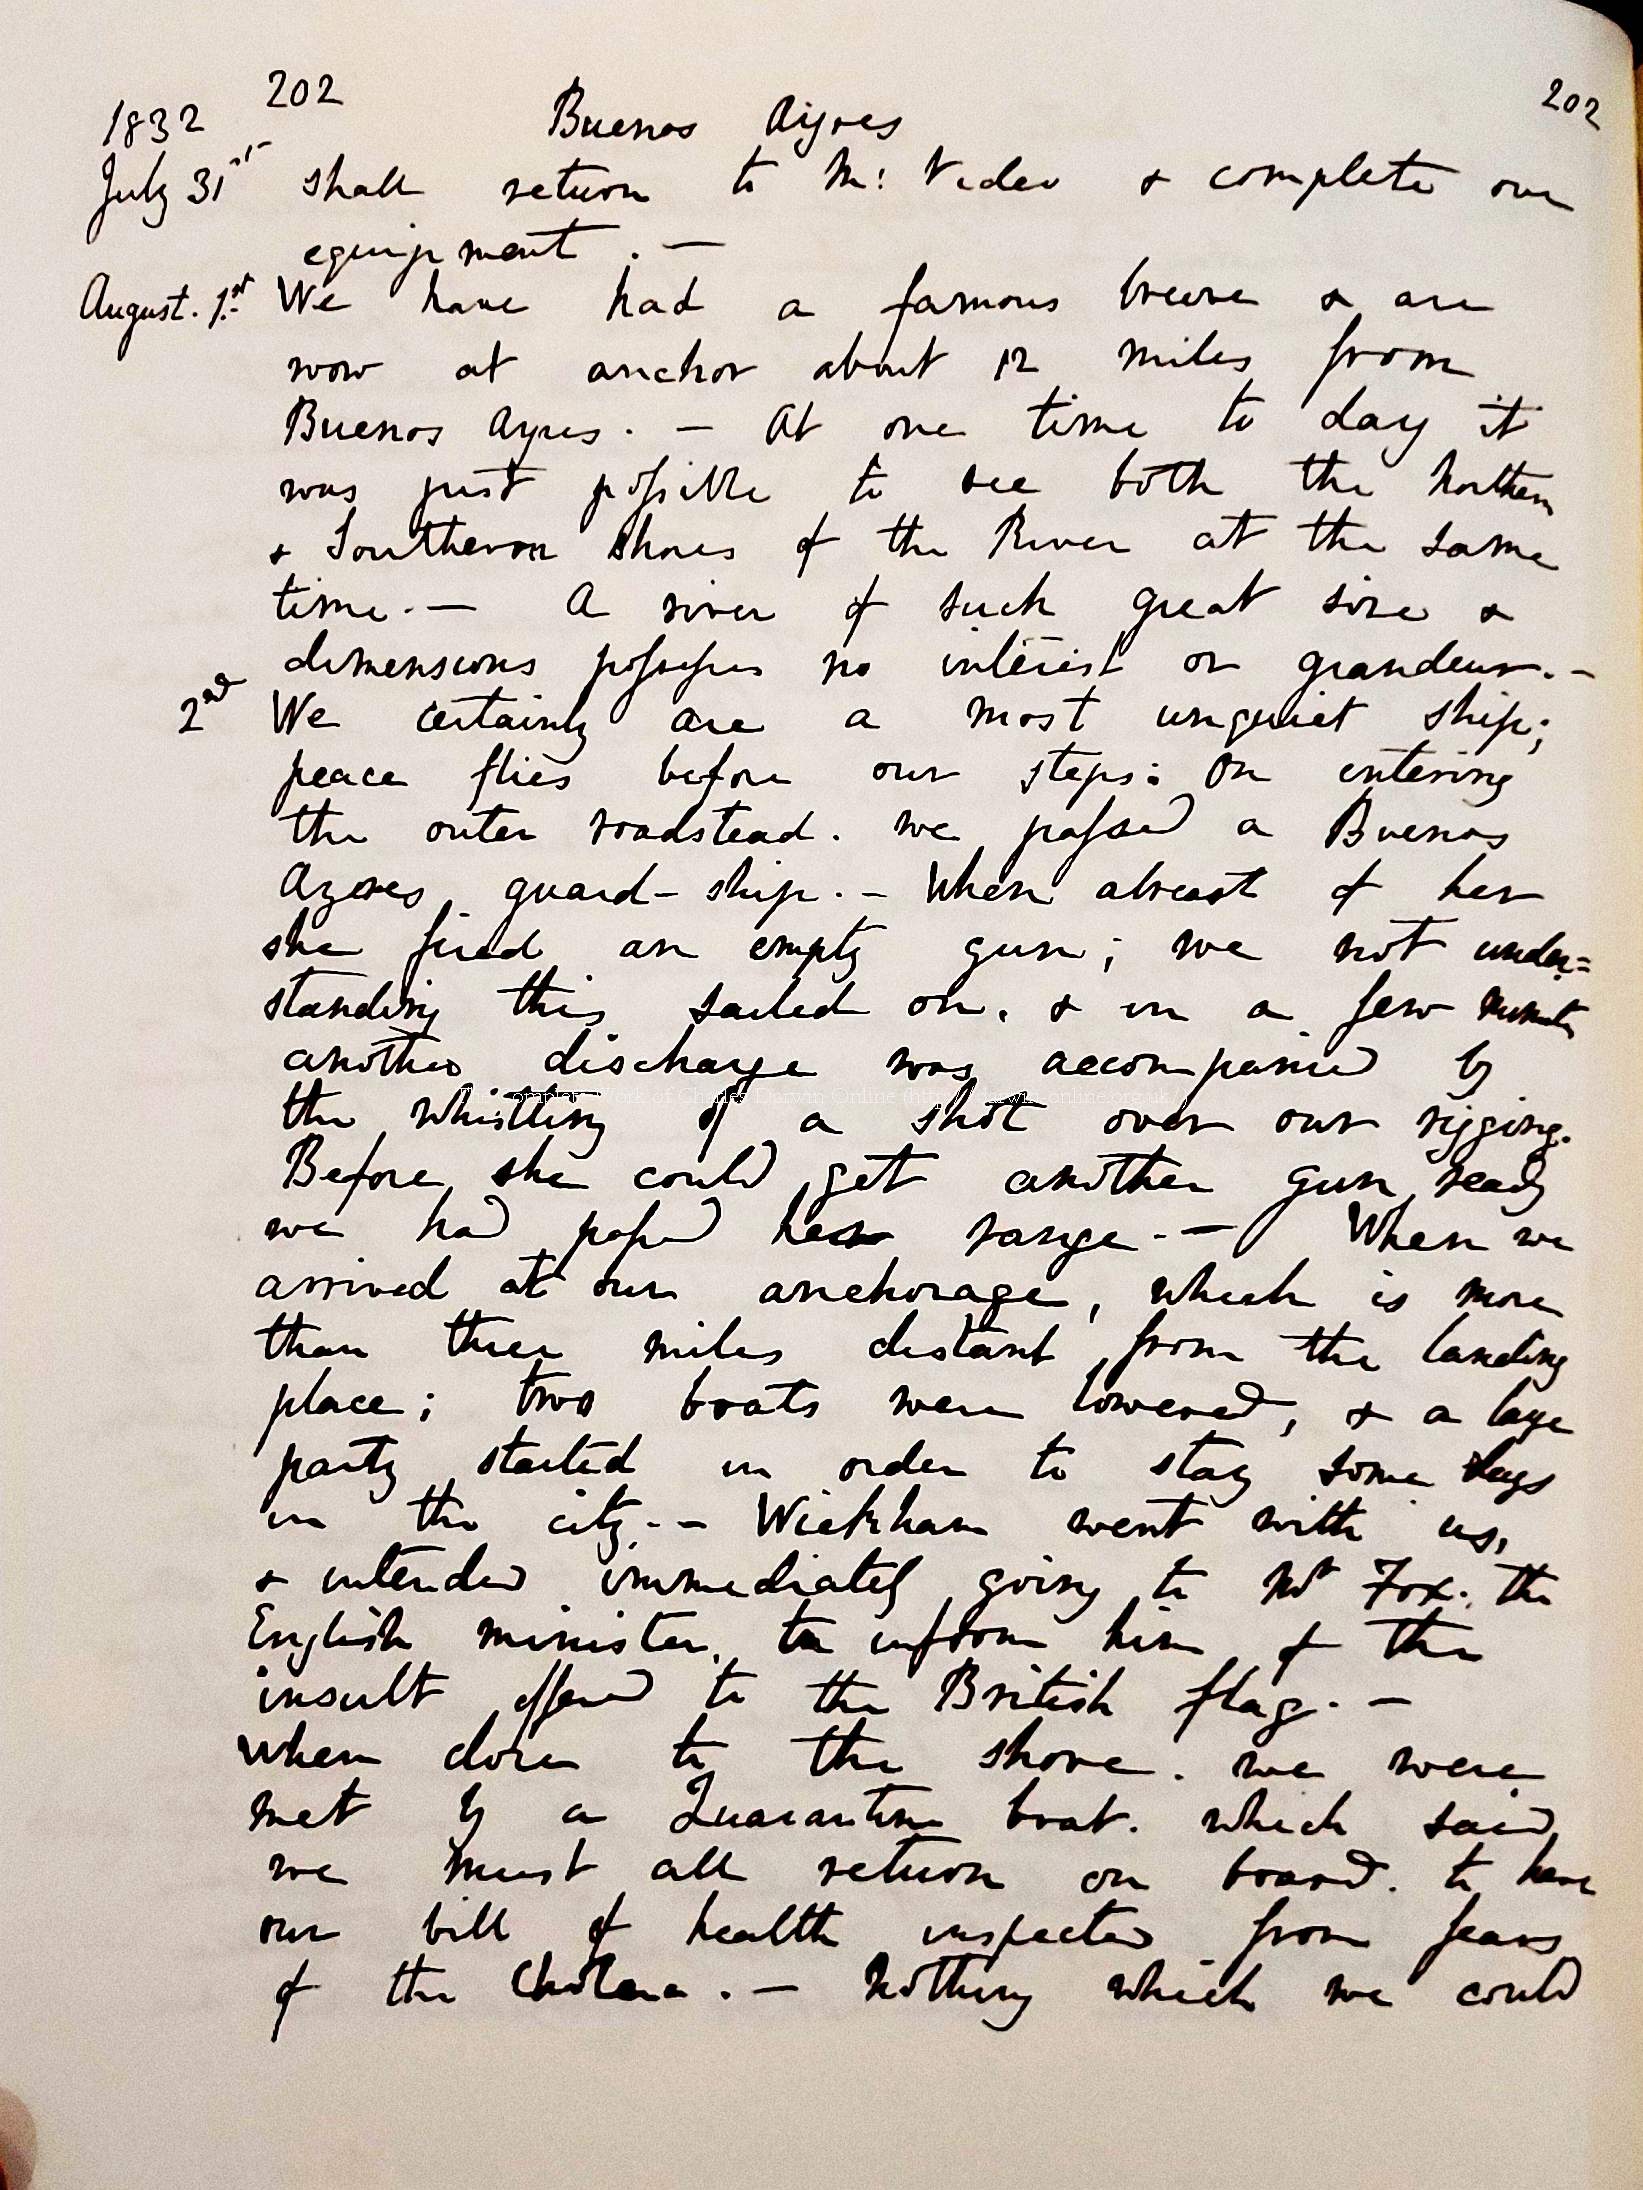 202
202
1832
Buenos Ayres
July 31st shall return to M: Video & complete our
equipment. —
August. 1st We have had a famous breeze & are
now at anchor about 12 miles from
Buenos Ayres. — At one time to day it
was just possible to see both the Northern
& Southern shores of the River at the same
time. — A river of such great size &
dimensions possesses no interest or grandeur. —
2nd We certainly are a most unquiet ship;
peace flies before our steps: On entering
the outer roadstead. we passed a Buenos
Ayres guard-ship. — When abreast of her
she fired an empty gun; we not under=
standing this sailed on, & in a few minutes
another discharge was accompanied by
the whistling of a shot over our rigging.
The Complete Work of Charles Darwin Online
Before she could get another gun ready
we had passed her range. — When we
arrived at our anchorage, which is more
than three miles distant from the landing
place; two boats were lowered, & a large
party started in order to stay some days
in the city. — Wickham went with us,
& intended immediately going to Mr Fox, the
English minister, to inform him of the
insult offered to the British flag. —
When close to the shore. we were
met by a Quarantine boat. which said
we must all return on board. to have
our bill of health inspected from fears
of the Cholera. — Nothing which we could